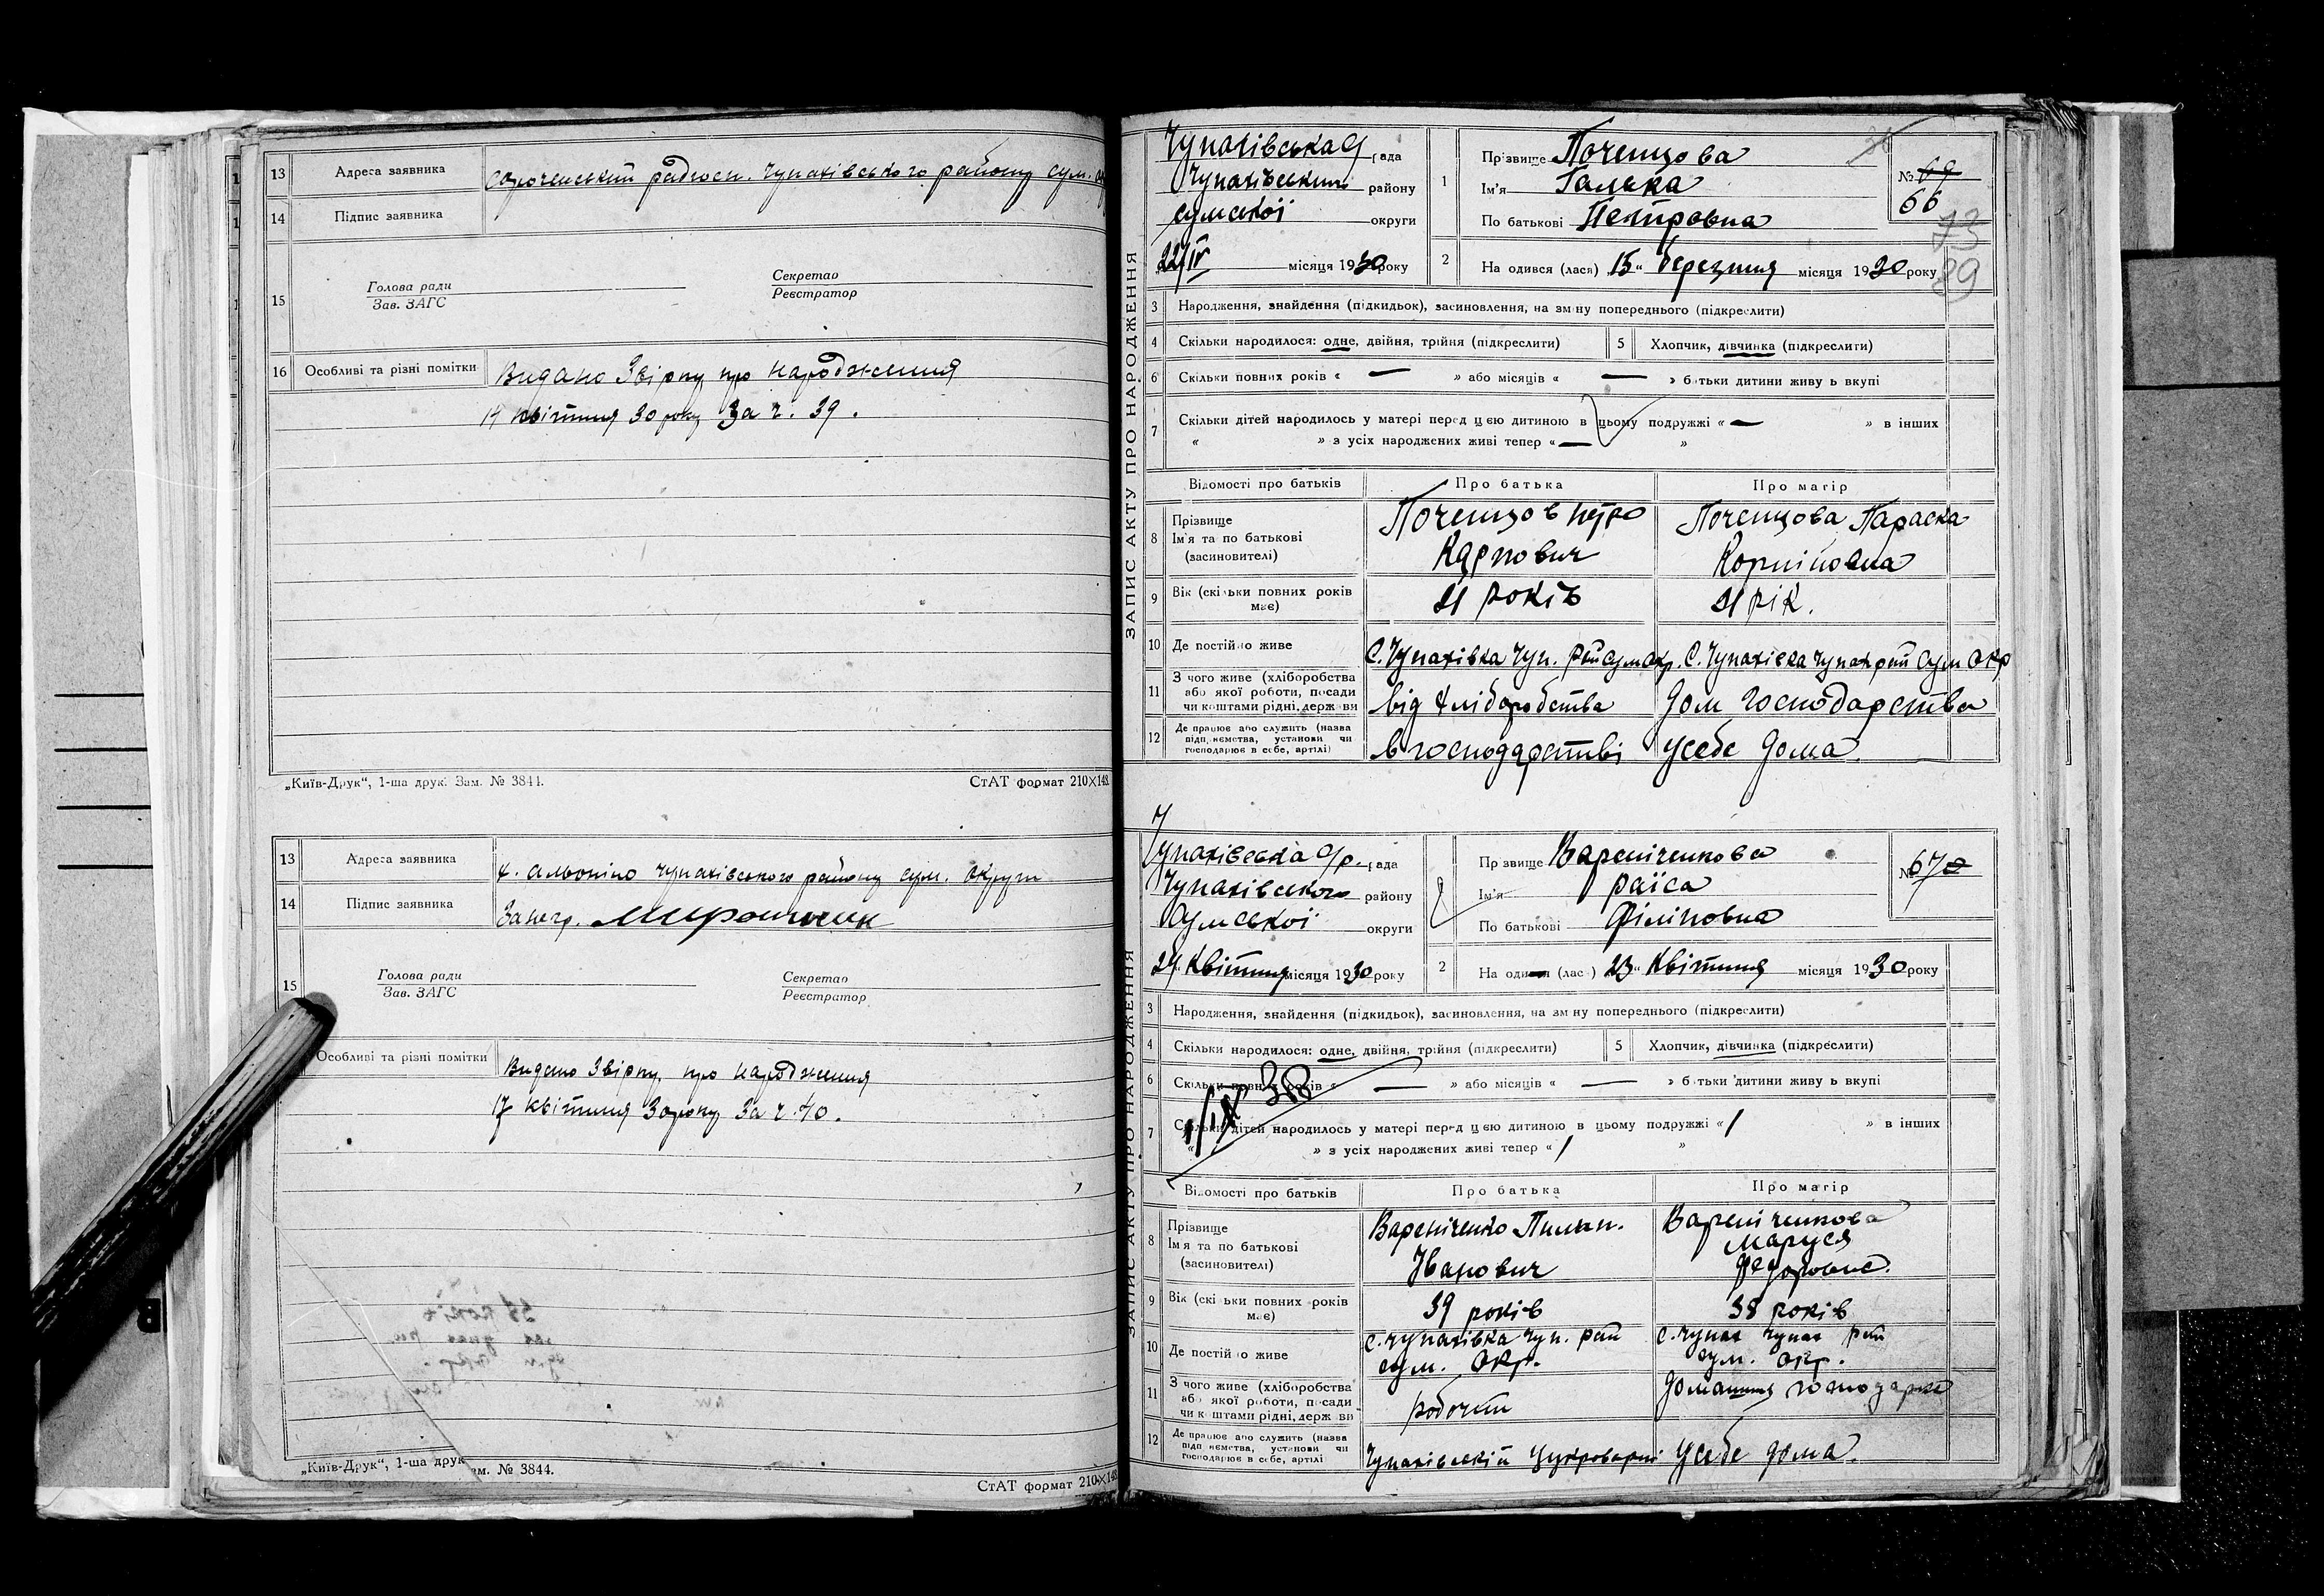 13 Адреса заявника радгосп. Чупахівського району Сум.
14 Підпис заявника
15 Голова ради Секретар
Зав. ЗАГС Реєстратор
16 Особливі та різні помітки Видано Звірку про народження
14 квітня 30 року За ч. 39.
„Київ-Друк“, 1-ша друк. Зам. № 3844. СтАТ формат 210×148
13 Адреса заявника х. Чупахівського району Сум. округи
14 Підпис заявника
15 Голова ради Секретар
Зав. ЗАГС Реєстратор
Особливі та різні помітки Видано Звірку про народження
17 квітня 30 року За ч. 40.
„Київ-Друк“, 1-ша друк. Зам. № 3844.
СтАТ формат 210×148
ЗАПИС АКТУ ПРО НАРОДЖЕННЯ
Чупахівська рада
Чупахівський району
Сумської округи
22/IV місяця 1930 року
1 Прізвище Почепцова
Ім'я Галька
По батькові Петровна
№ 69
66
73
89
2 На одився (лася) „15“ березня місяця 1930 року
3 Народження, знайдення (підкидьок), засиновлення, на зміну попереднього (підкреслити)
4 Скільки народилося: одне, двійня, трійня (підкреслити) 5 Хлопчик, дівчинка (підкреслити)
6 Скільки повних років « — » або місяців « — » батьки дитини живуть вкупі
7 Скільки дітей народилось у матері перед цією дитиною в цьому подружжі « — » в інших
« » з усіх народжених живі тепер « — »
Відомості про батьків Про батька Про матір
8 Прізвище Ім'я та по батькові (засиновителі) Почепцов Петро Карпович Почепцова Параска Корніївна
9 Вік (скільки повних років має) 21 років 21 рік.
10 Де постійно живе С. Чупахівка Чуп. рай Сум окр. С. Чупахівка Чупах рай Сум окр
11 З чого живе (хліборобства або якої роботи, посади чи коштами рідні, держави від хліборобства Дом господарства
12 Де працює або служить (назва підприємства, установи чи господарює в себе, артілі) в господарстві усебе дома.
ЗАПИС АКТУ ПРО НАРОДЖЕННЯ
Чупахівська С/р. рада
Чупахівського району
Сумської округи
24 Квітня місяця 1930 року
1 Прізвище Вареніченкова
Ім'я раїса
По батькові Філіповна
№ 67
2 На один (лась) 23“ Квітня місяця 1930 року
3 Народження, знайдення (підкидьок), засиновлення, на зміну попереднього (підкреслити)
4 Скільки народилося: одне, двійня, трійня (підкреслити) 5 Хлопчик, дівчинка (підкреслити)
6 Скільки повних років « — » або місяців « — » батьки дитини живуть вкупі
1/IX 38
7 Скільки дітей народилось у матері перед цією дитиною в цьому подружжі « / » в інших
« » з усіх народжених живі тепер « / »
Відомості про батьків Про батька Про матір
8 Прізвище Ім'я та по батькові (засиновителі) Вареніченко Пилип. Іванович Вареніченкова Маруся Федоровна.
9 Вік (скільки повних років має) 39 років 38 років
10 Де постійно живе С. Чупахівка Чуп. рай Сум. окр. С. Чупах Чупах рай Сум. окр.
11 З чого живе (хліборобства або якої роботи, посади чи коштами рідні, держави робочий Домашня господарка
12 Де працює або служить (назва підприємства, установи чи господарює в себе, артілі Чупахівській Цукроварні усебе дома.